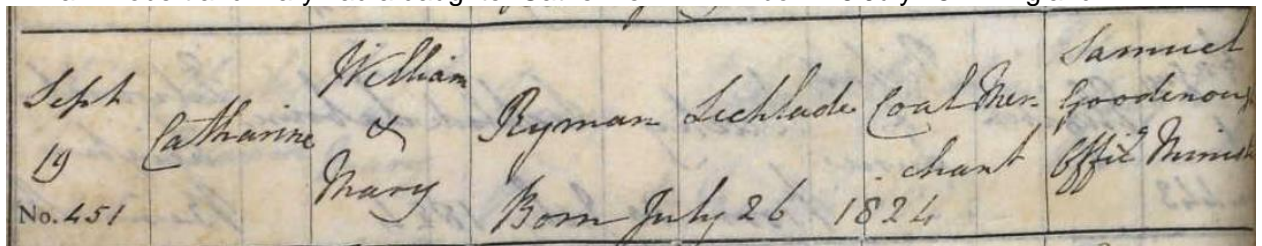 Sept
19
No. 451
Catharine
William
&
Mary
Ryman
Lechlade
Coal Mer-
chant
Samuel
Goodenough
Offig Minist
Born July 26 1824